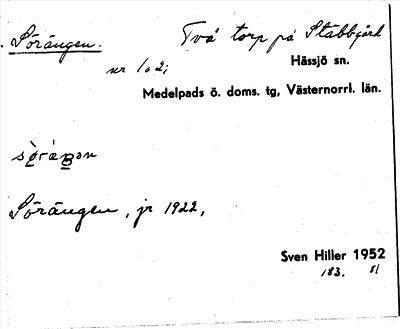 Sörängen. Två torp på Stabbgård
nr 1 o 2; Hässjö sn.
Medelpads ö. doms. tg, Västernorrl. län.
Sörängen, jr 1922,
Sven Hiller 1952
183.